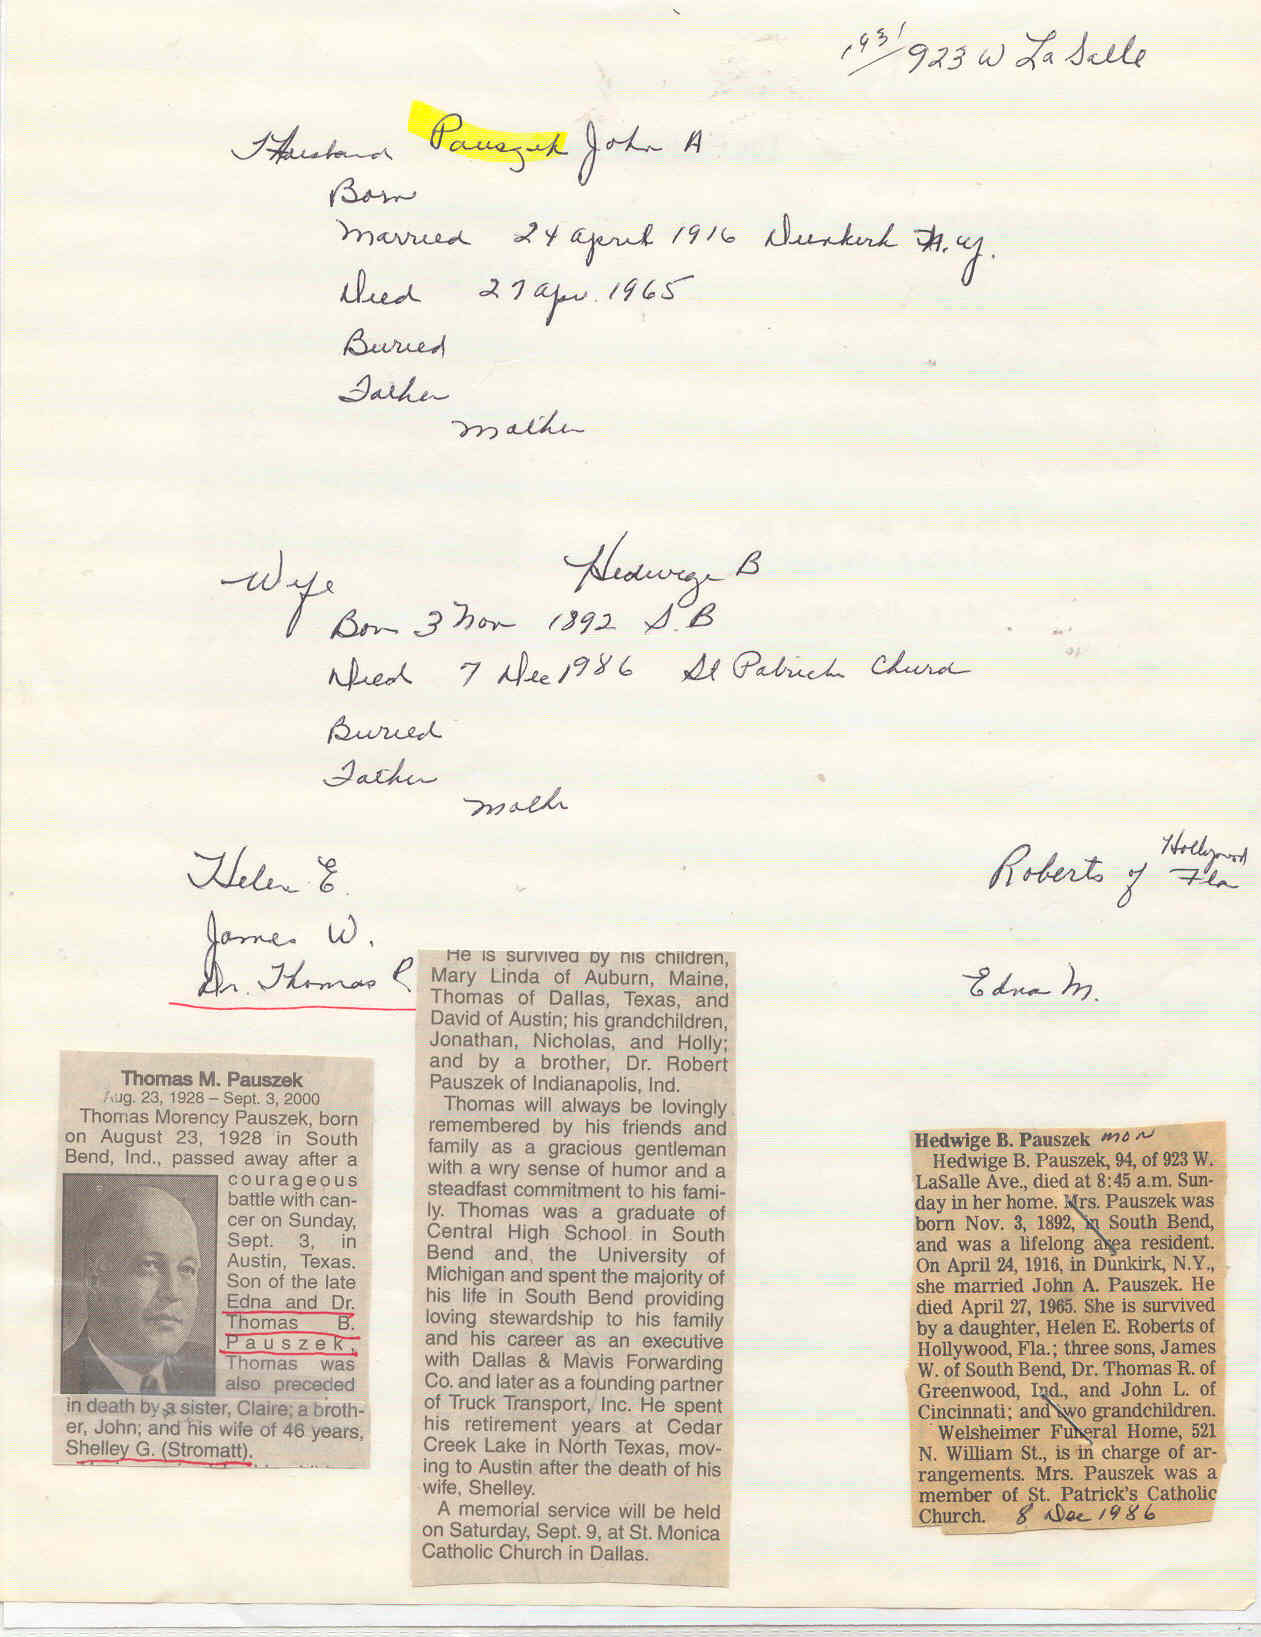 1931/923 W LaSalle
Husband Pauszek John A
Born
Married 24 April 1916 Dunkirk N.Y.
Died 27 Apr. 1965
Buried
Father
Mother
Wife Hedwige B
Born 3 Nov 1892 S.B
Died 7 Dec 1986 St Patrick Church
Buried
Father
Moth
Helen E. Roberts of Hollywood Fla
James W.
Dr. Thomas R. Edna M.
Thomas M. Pauszek
Aug. 23, 1928 – Sept. 3, 2000
Thomas Morency Pauszek, born
on August 23, 1928 in South
Bend, Ind., passed away after a
courageous
battle with can-
cer on Sunday,
Sept. 3, in
Austin, Texas.
Son of the late
Edna and Dr.
Thomas B.
Pauszek,
Thomas was
also preceded
in death by a sister, Claire; a broth-
er, John; and his wife of 46 years,
Shelley G. (Stromatt).
He is survived by his children,
Mary Linda of Auburn, Maine,
Thomas of Dallas, Texas, and
David of Austin; his grandchildren,
Jonathan, Nicholas, and Holly;
and by a brother, Dr. Robert
Pauszek of Indianapolis, Ind.
Thomas will always be lovingly
remembered by his friends and
family as a gracious gentleman
with a wry sense of humor and a
steadfast commitment to his fami-
ly. Thomas was a graduate of
Central High School in South
Bend and, the University of
Michigan and spent the majority of
his life in South Bend providing
loving stewardship to his family
and his career as an executive
with Dallas & Mavis Forwarding
Co. and later as a founding partner
of Truck Transport, Inc. He spent
his retirement years at Cedar
Creek Lake in North Texas, mov-
ing to Austin after the death of his
wife, Shelley.
A memorial service will be held
on Saturday, Sept. 9, at St. Monica
Catholic Church in Dallas.
Hedwige B. Pauszek mon
Hedwige B. Pauszek, 94, of 923 W.
LaSalle Ave., died at 8:45 a.m. Sun-
day in her home. Mrs. Pauszek was
born Nov. 3, 1892, in South Bend,
and was a lifelong area resident.
On April 24, 1916, in Dunkirk, N.Y.,
she married John A. Pauszek. He
died April 27, 1965. She is survived
by a daughter, Helen E. Roberts of
Hollywood, Fla.; three sons, James
W. of South Bend, Dr. Thomas R. of
Greenwood, Ind., and John L. of
Cincinnati; and two grandchildren.
Welsheimer Funeral Home, 521
N. William St., is in charge of ar-
rangements. Mrs. Pauszek was a
member of St. Patrick's Catholic
Church. 8 Dec 1986